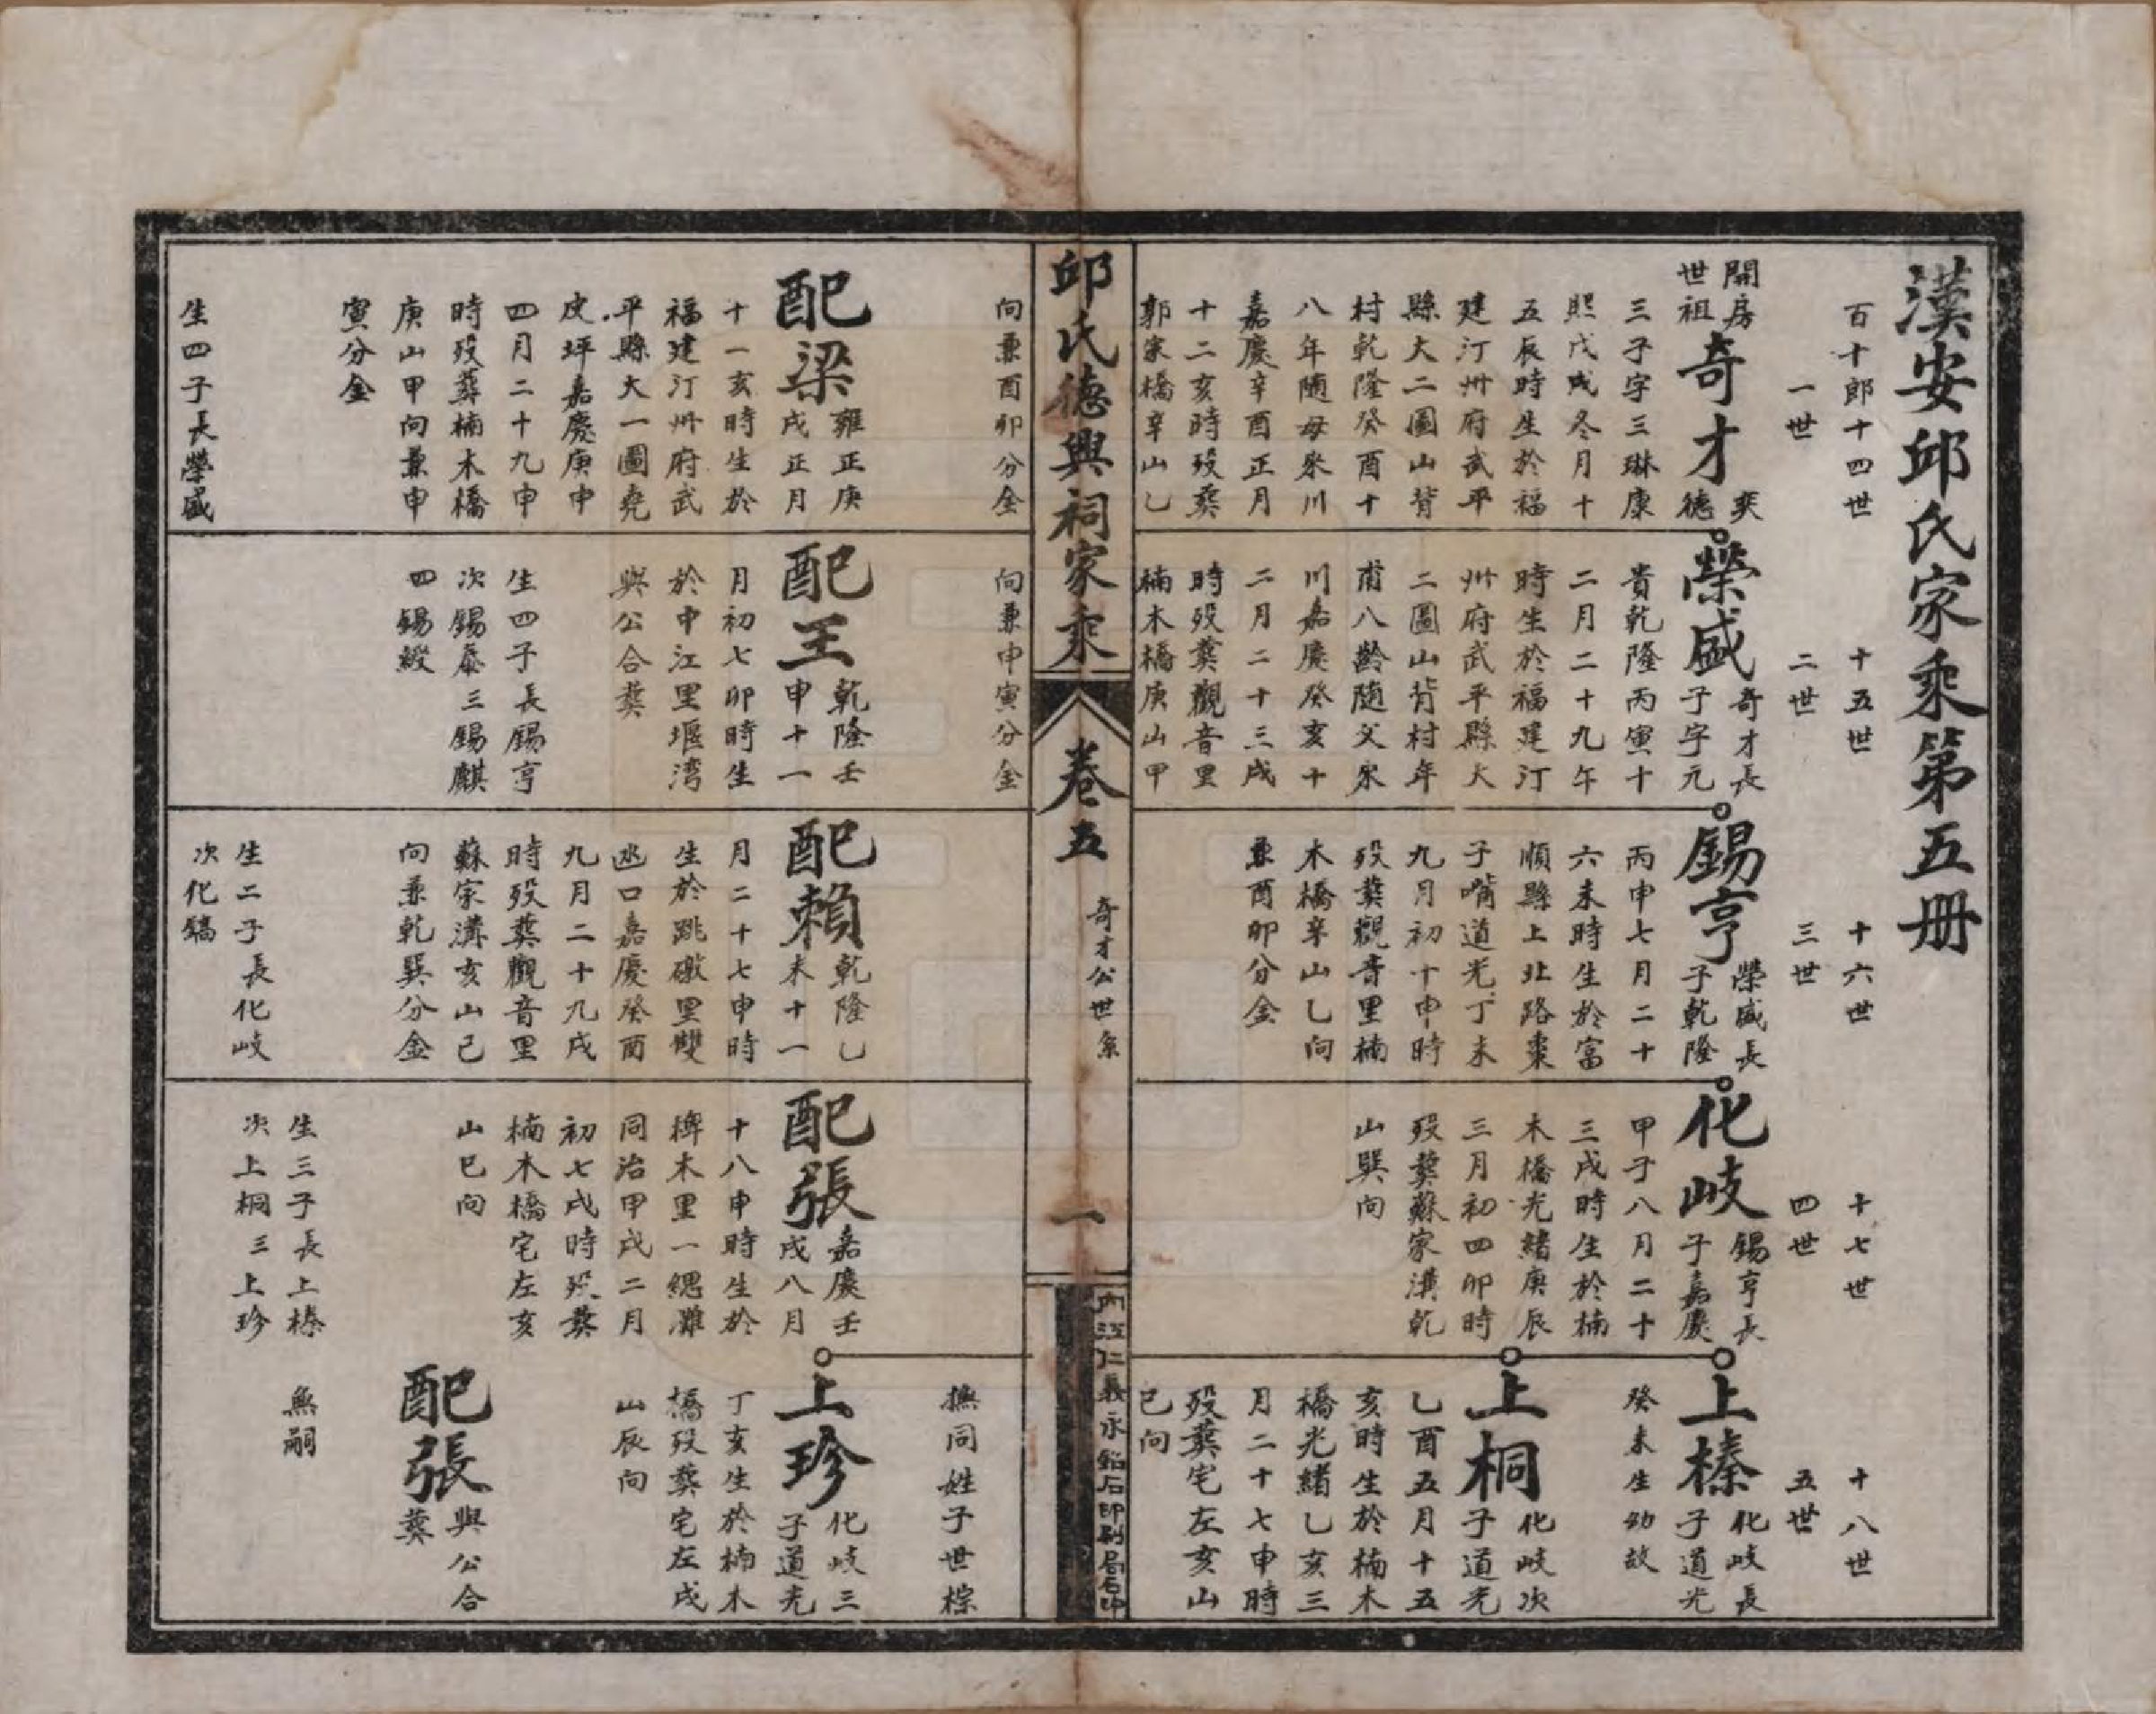 漢安邱氏家乘第五册
百十郎十四世
一世
十五世
二世
十六世
三世
十七世
四世
十八世
五世
開房
世祖
奇才
奕
德
三子字三琳康
熙戊戌冬月十
五辰時生於福
建汀州府武平
縣大二圖山背
村乾隆癸酉十
八年隨母來川
嘉慶辛酉正月
十二亥時歿葬
郭家橋辛山乙
向兼酉卯分金
配梁
雍正庚
戌正月
十一亥時生於
福建汀州府武
平縣大一圖堯
皮坪嘉慶庚申
四月二十九申
時歿葬楠木橋
庚山甲向兼申
寅分金
生四子長榮盛
榮盛
奇才長
子字元
貴乾隆丙寅十
二月二十九午
時生於福建汀
州府武平縣大
二圖山背村年
甫八齡隨父來
川嘉慶癸亥十
二月二十三戌
時歿葬觀音里
楠木橋庚山甲
向兼申寅分金
配王
乾隆壬
申十一
月初七卯時生
於中江里堰湾
與公合葬
生四子長錫亨
次錫泰三錫麒
四錫緞
錫亨
榮盛長
子乾隆
丙申七月二十
六未時生於富
順縣上北路棗
子嘴道光丁未
九月初十申時
歿葬觀音里楠
木橋辛山乙向
兼酉卯分金
配賴
乾隆乙
未十一
月二十七申時
生於跳磴里雙
凼口嘉慶癸酉
九月二十九戌
時歿葬觀音里
蘇家溝亥山己
向兼乾巽分金
生二子長化岐
次化鎬
化岐
錫亨長
子嘉慶
甲子八月二十
三戌時生於楠
木橋光緒庚辰
三月初四卯時
歿葬蘇家溝乾
山巽向
配張
嘉慶壬
戌八月
十八申時生於
椑木里一綫灘
同治甲戌二月
初七戌時歿葬
楠木橋宅左亥
山巳向
生三子長上榛
次上桐三上珍
上榛
化岐長
子道光
癸未生幼故
上桐
化岐次
子道光
乙酉五月十五
亥時生於楠木
橋光緒乙亥三
月二十七申時
歿葬宅左亥山
巳向
撫同姓子世棕
上珍
化岐三
子道光
丁亥生於楠木
橋歿葬宅左戌
山辰向
配張
與公合
葬
無嗣
邱氏德興祠家乘
卷五
奇才公世系
一
內江仁義永鉛石印刷局石印